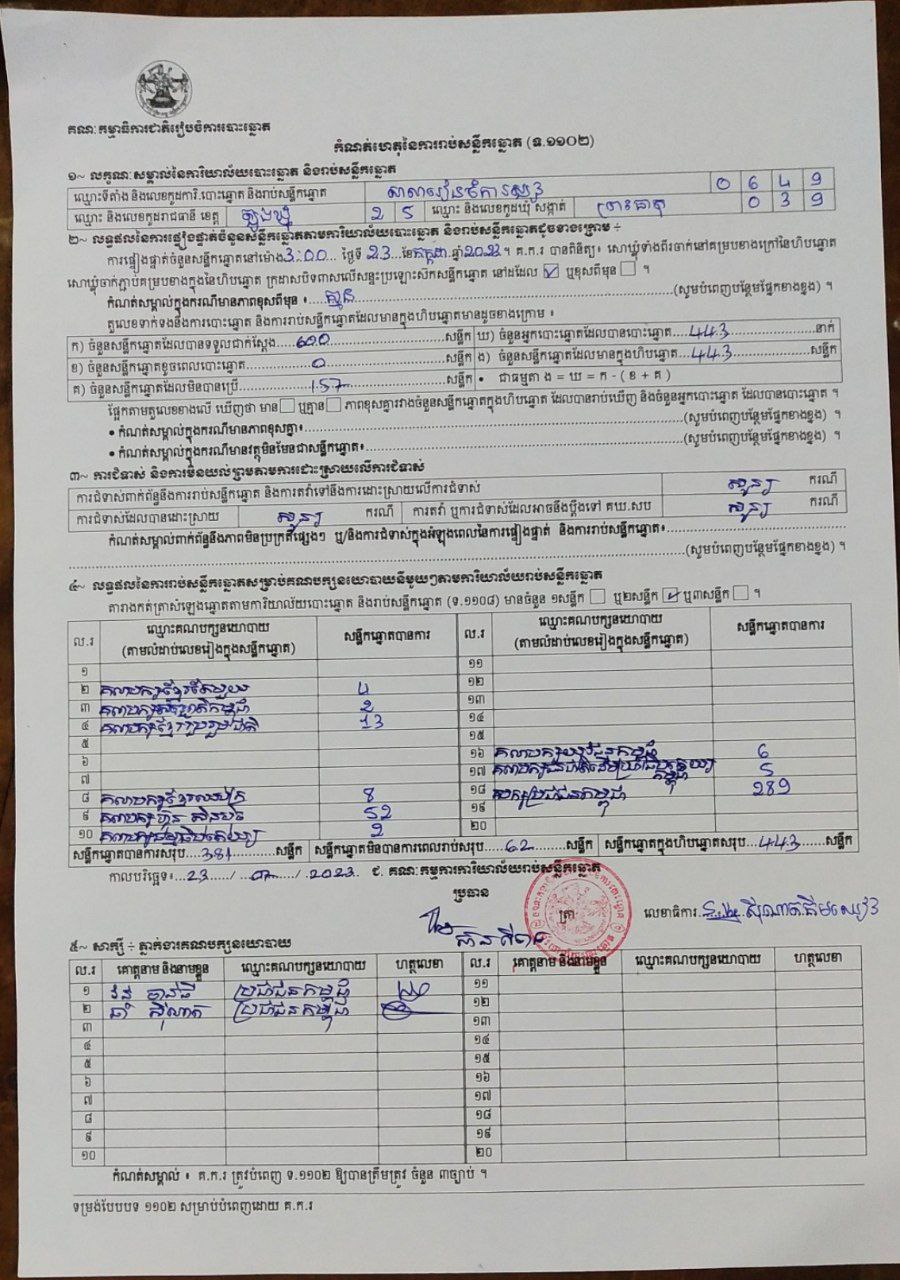 គណៈកម្មាធិការជាតិរៀបចំការបោះឆ្នោត
កំណត់ហេតុនៃការរាប់សន្លឹកឆ្នោត (ទ.១១០២)
១~ លក្ខណៈសម្គាល់នៃការិយាល័យបោះឆ្នោត និងរាប់សន្លឹកឆ្នោត
ឈ្មោះទីតាំង និងលេខកូដការិ.បោះឆ្នោត និងរាប់សន្លឹកឆ្នោត 0 6 4 9
ឈ្មោះ និងលេខកូដរាជធានី ខេត្ត ត្បូងឃ្មុំ 2 5 ឈ្មោះ និងលេខកូដឃុំ សង្កាត់ ព្រះធាតុ 0 3 9
២~ លទ្ធផលនៃការផ្ទៀងផ្ទាត់ចំនួនសន្លឹកឆ្នោតតាមការិយាល័យបោះឆ្នោត និងរាប់សន្លឹកឆ្នោតដូចខាងក្រោម ÷
ការផ្ទៀងផ្ទាត់ចំនួនសន្លឹកឆ្នោតនៅម៉ោង 3:00 ថ្ងៃទី 23 ខែកក្កដា ឆ្នាំ2023 ។ គ.ក.រ បានពិនិត្យ៖ សោឃ្មុំទាំងពីរចាក់នៅគម្របខាងក្រៅនៃហិបឆ្នោត
សោឃ្មុំចាក់ភ្ជាប់គម្របខាងក្នុងនៃហិបឆ្នោត ក្រដាសបិទពាសលើសន្ទះប្រឡោះសឹកសន្លឹកឆ្នោត នៅដដែល ឬខុសពីមុន ។
កំណត់សម្គាល់ក្នុងករណីមានភាពខុសពីមុន ៖ គ្មាន (សូមបំពេញបន្ថែមផ្នែកខាងខ្នង) ។
តួលេខទាក់ទងនឹងការបោះឆ្នោត និងការរាប់សន្លឹកឆ្នោតដែលមានក្នុងហិបឆ្នោតមានដូចខាងក្រោម ៖
ក) ចំនួនសន្លឹកឆ្នោតដែលបានទទួលជាក់ស្តែង 600 សន្លឹក ឃ) ចំនួនអ្នកបោះឆ្នោតដែលបានបោះឆ្នោត 443 នាក់
ខ) ចំនួនសន្លឹកឆ្នោតខូចពេលបោះឆ្នោត 0 សន្លឹក ង) ចំនួនសន្លឹកឆ្នោតដែលមានក្នុងហិបឆ្នោត 443 សន្លឹក
គ) ចំនួនសន្លឹកឆ្នោតដែលមិនបានប្រើ 157 សន្លឹក • ជាធម្មតា ង = ឃ = ក - ( ខ + គ )
ផ្អែកតាមតួលេខខាងលើ ឃើញថា មាន ឬគ្មាន ភាពខុសគ្នារវាងចំនួនសន្លឹកឆ្នោតក្នុងហិបឆ្នោត ដែលបានរាប់ឃើញ និងចំនួនអ្នកបោះឆ្នោត ដែលបានបោះឆ្នោត ។
• កំណត់សម្គាល់ក្នុងករណីមានភាពខុសគ្នា៖ (សូមបំពេញបន្ថែមផ្នែកខាងខ្នង) ។
• កំណត់សម្គាល់ក្នុងករណីមានវត្ថុមិនមែនជាសន្លឹកឆ្នោត៖ (សូមបំពេញបន្ថែមផ្នែកខាងខ្នង) ។
៣~ ការជំទាស់ និងការមិនយល់ព្រមតាមការដោះស្រាយលើការជំទាស់
ការជំទាស់ពាក់ព័ន្ធនឹងការរាប់សន្លឹកឆ្នោត និងការតវ៉ាទៅនឹងការដោះស្រាយលើការជំទាស់ សូន្យ ករណី
ការជំទាស់ដែលបានដោះស្រាយ សូន្យ ករណី ការតវ៉ា ឬការជំទាស់ដែលអាចនឹងប្តឹងទៅ គឃ.សប សូន្យ ករណី
កំណត់សម្គាល់ពាក់ព័ន្ធនឹងភាពមិនប្រក្រតីផ្សេងៗ ឬ/និងការជំទាស់ក្នុងអំឡុងពេលនៃការផ្ទៀងផ្ទាត់ និងការរាប់សន្លឹកឆ្នោត៖
(សូមបំពេញបន្ថែមផ្នែកខាងខ្នង) ។
៤~ លទ្ធផលនៃការរាប់សន្លឹកឆ្នោតសម្រាប់គណបក្សនយោបាយនីមួយៗតាមការិយាល័យរាប់សន្លឹកឆ្នោត
តារាងកត់ត្រាសំឡេងឆ្នោតតាមការិយាល័យបោះឆ្នោត និងរាប់សន្លឹកឆ្នោត (ទ.១១០៨) មានចំនួន ១សន្លឹក ឬ២សន្លឹក ឬ៣សន្លឹក ។
ល.រ ឈ្មោះគណបក្សនយោបាយ (តាមលំដាប់លេខរៀងក្នុងសន្លឹកឆ្នោត) សន្លឹកឆ្នោតបានការ ល.រ ឈ្មោះគណបក្សនយោបាយ (តាមលំដាប់លេខរៀងក្នុងសន្លឹកឆ្នោត) សន្លឹកឆ្នោតបានការ
១ ១១
២ គណបក្សខ្មែរតែមួយ 4 ១២
៣ 2 ១៣
៤ គណបក្សខ្មែររួបរួមជាតិ 13 ១៤
៥ ១៥
៦ ១៦ គណបក្សយុវជនកម្ពុជា 6
៧ ១៧ 5
៨ 8 ១៨ បក្សប្រជាជនកម្ពុជា 289
៩ 52 ១៩
១០ 2 ២០
សន្លឹកឆ្នោតបានការសរុប 381 សន្លឹក សន្លឹកឆ្នោតមិនបានការពេលរាប់សរុប 62 សន្លឹក សន្លឹកឆ្នោតក្នុងហិបឆ្នោតសរុប 443 សន្លឹក
កាលបរិច្ឆេទ៖ 23 / 07 / 2023 ជ. គណៈកម្មការការិយាល័យរាប់សន្លឹកឆ្នោត
ប្រធាន
ត្រា លេខាធិការ
៥~ សាក្សី ÷ ភ្នាក់ងារគណបក្សនយោបាយ
ល.រ គោត្តនាម និងនាមខ្លួន ឈ្មោះគណបក្សនយោបាយ ហត្ថលេខា ល.រ គោត្តនាម និងនាមខ្លួន ឈ្មោះគណបក្សនយោបាយ ហត្ថលេខា
១ ប្រជាជនកម្ពុជា ១១
២ ប្រជាជនកម្ពុជា ១២
៣ ១៣
៤ ១៤
៥ ១៥
៦ ១៦
៧ ១៧
៨ ១៨
៩ ១៩
១០ ២០
កំណត់សម្គាល់ ៖ គ.ក.រ ត្រូវបំពេញ ទ.១១០២ ឱ្យបានត្រឹមត្រូវ ចំនួន ៣ច្បាប់ ។
ទម្រង់បែបបទ ១១០២ សម្រាប់បំពេញដោយ គ.ក.រ